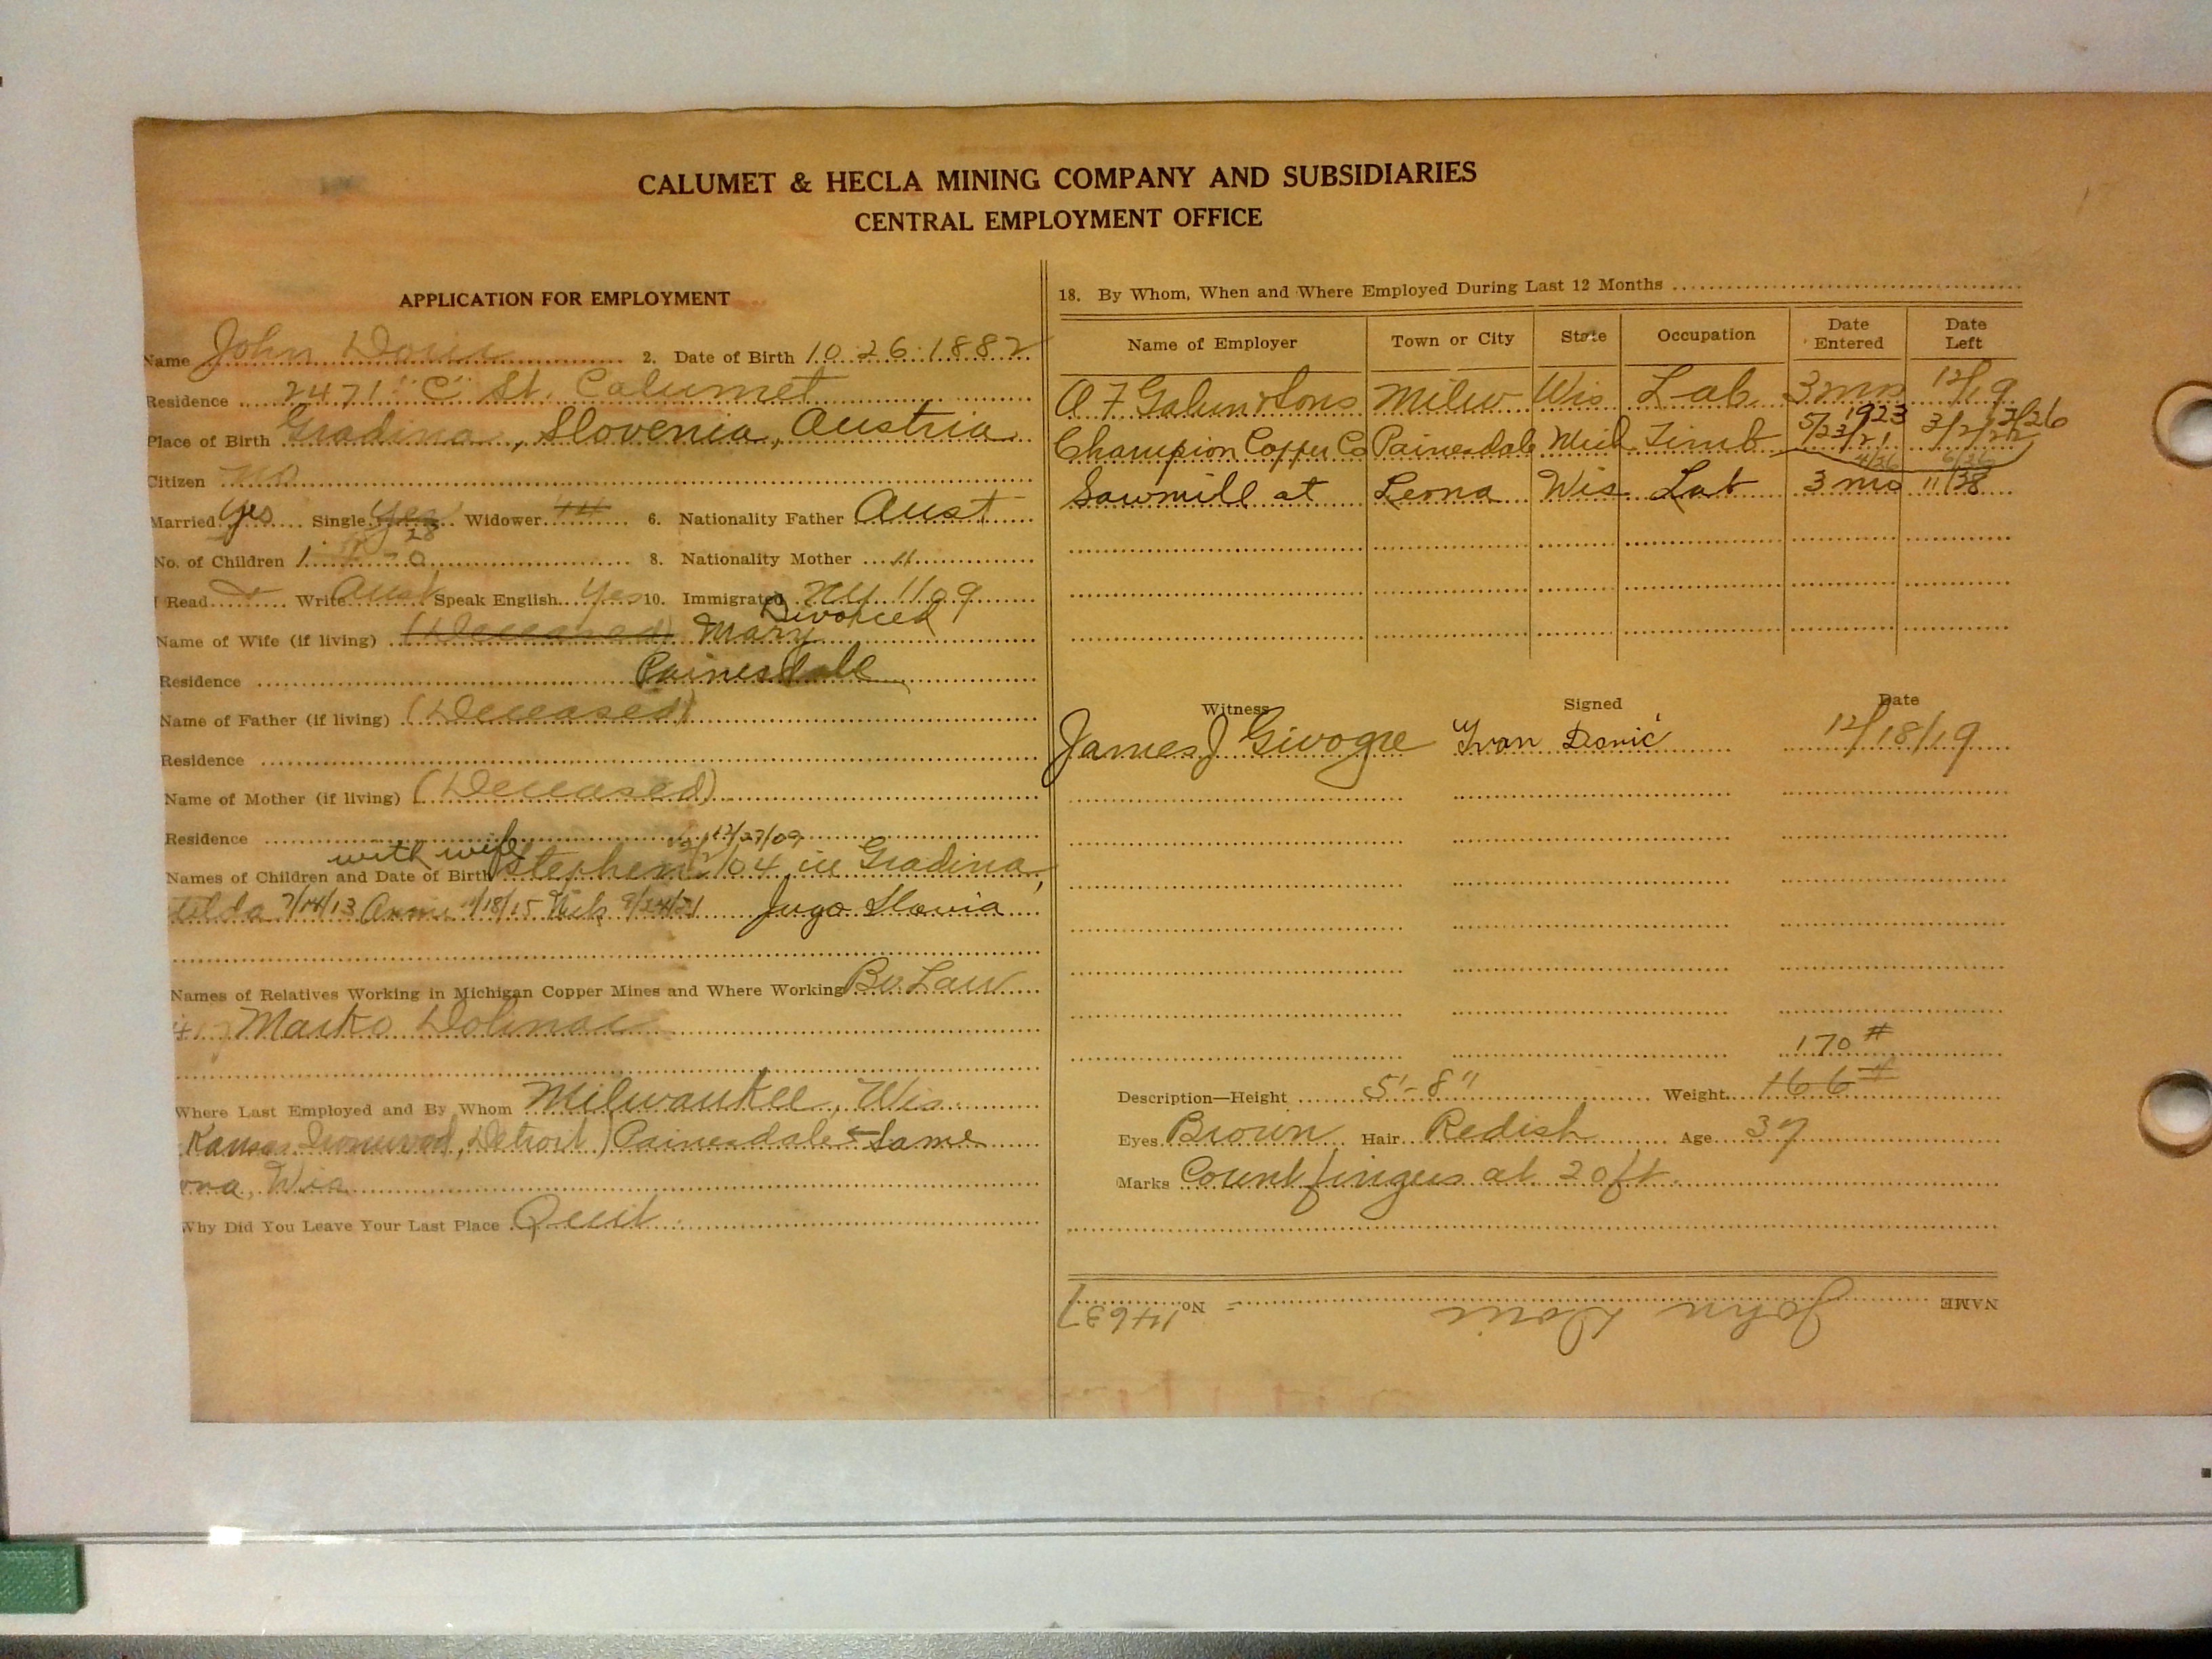 CALUMET & HECLA MINING COMPANY AND SUBSIDIARIES
CENTRAL EMPLOYMENT OFFICE
APPLICATION FOR EMPLOYMENT
Name John Doric 2. Date of Birth 10 26 1882
Residence 2471 "C" St. Calumet
Place of Birth Gradina, Slovenia, Austria
Citizen No
Married Yes Single Yes Widower 6. Nationality Father Aust
28
No. of Children 1 0 8. Nationality Mother "
Read Write Aust Speak English Yes 10. Immigrated NY 1109
Divorced
Name of Wife (if living) (Deceased) Mary
Residence Painesdale
Name of Father (if living) (Deceased)
Residence
Name of Mother (if living) (Deceased)
Residence 12/27/09
with wife
Names of Children and Date of Birth Stephen 04 in Gradina,
7/14/13 Anna 11/18/15 Nick 9/24/21 Jugo Slavia
Names of Relatives Working in Michigan Copper Mines and Where Working Br. Law
Marko Dolinac
Where Last Employed and By Whom Milwaukee, Wis.
Kansas Ironwood, Detroit) Painesdale Same
ona, Wis
Why Did You Leave Your Last Place Quit
18. By Whom, When and Where Employed During Last 12 Months
Name of Employer Town or City State Occupation Date Entered Date Left
A F Galun & Sons Milw Wis Lab 3 mos 12/19
1923 2/26
Champion Copper Co Painesdale Mich Timb 5/23/21 3/2/22
4/36 6/36
Sawmill at Leona Wis Lab 3 mo 11/38
Witness Signed Date
James J Givogre Ivan Dorić 12/18/19
170 #
Description—Height 5'-8" Weight 166 #
Eyes Brown Hair Redish Age 37
Marks Count fingers at 20 ft.
NAME John Doric No. 14637